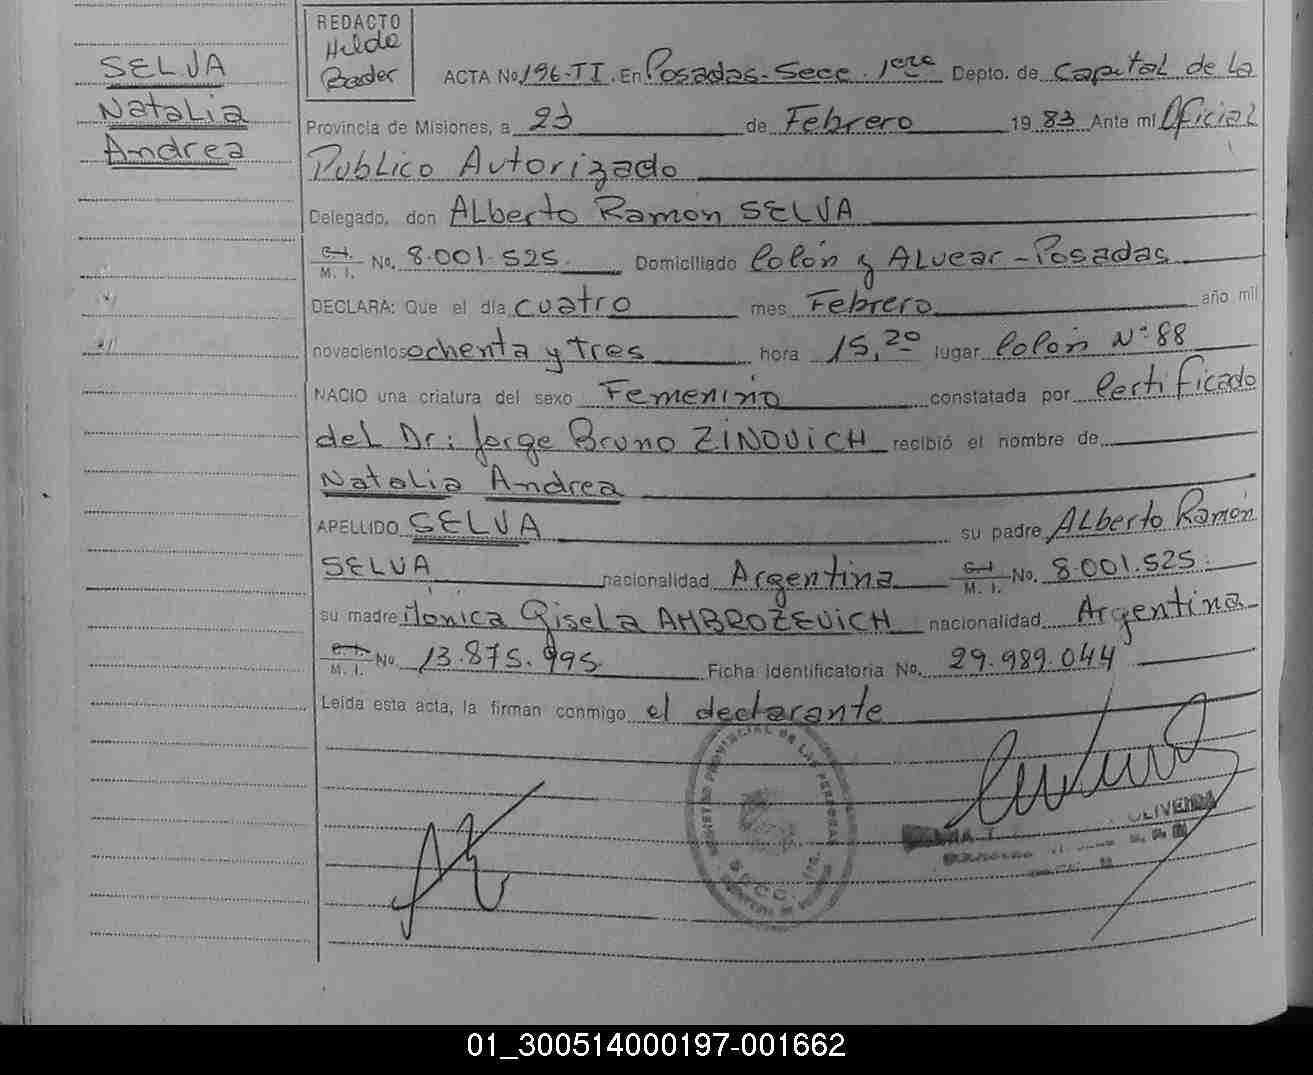 SELVA
Natalia
Andrea
REDACTO
Hilda
Bader
ACTA No 196-TI. En Posadas- Secc. 1era Depto. de Capital de la
Provincia de Misiones, a 23 de Febrero 19 83 Ante mi Oficial
Publico Autorizado
Delegado, don Alberto Ramón SELVA
C. I. M. I. No. 8.001.525. Domiciliado Colón y Alvear - Posadas
DECLARA: Que el día cuatro mes Febrero año mil
novecientos ochenta y tres hora 15,20 lugar Colón Nº 88
NACIO una criatura del sexo Femenino constatada por Certificado
del Dr: Jorge Bruno ZINOVICH recibió el nombre de
Natalia Andrea
APELLIDO SELVA su padre Alberto Ramón
SELVA nacionalidad Argentina C. I. M. I. No. 8.001.525.
su madre Mónica Gisela AMBROZEVICH nacionalidad Argentina
C. I. M. I. No. 13.875.995. Ficha identificatoria No. 29.989.044
Leída esta acta, la firman conmigo el declarante
REGISTRO PROVINCIAL DE LAS PERSONAS
SECC. 1ra.
OLIVEIRA
01_300514000197-001662